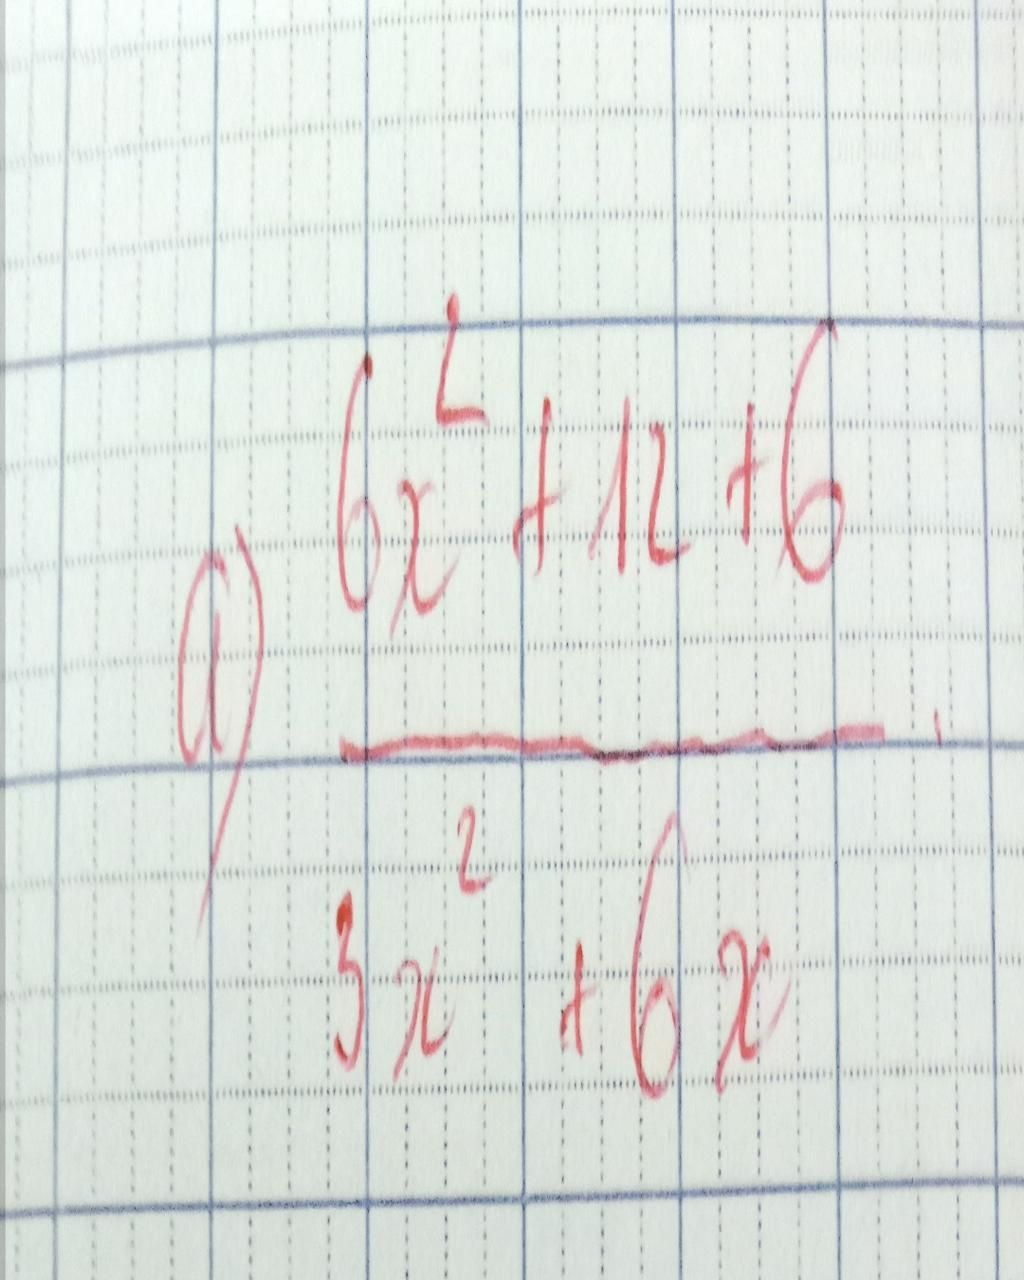 6x² + 12 + 6
a)
3x² + 6x